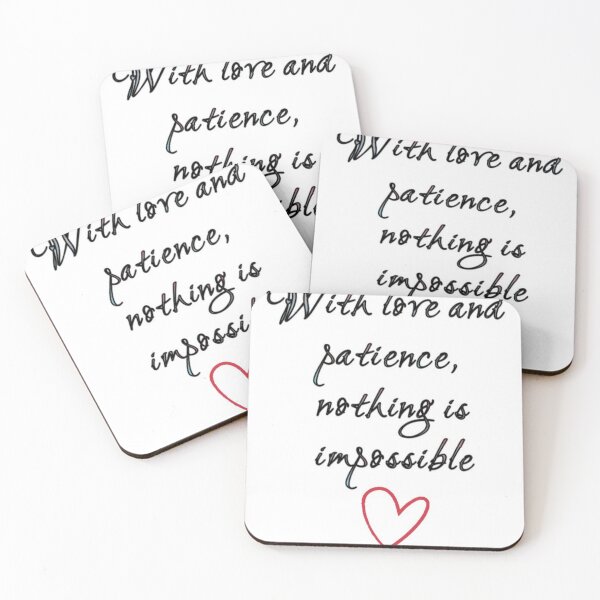 With love and
patience,
nothing is
With love and
patience,
nothing is
impossible
With love and
patience,
nothing is
impossi
With love and
patience,
nothing is
impossible